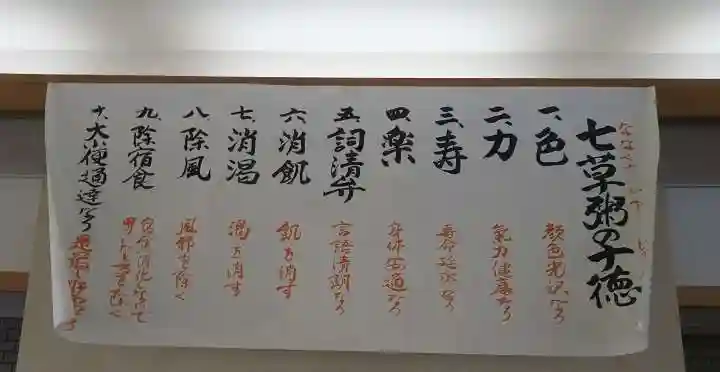 七草粥の十徳
ななくさ がゆ
一、色
顔色光沢なり
二、力
気力健康なり
三、寿
寿命延長なり
四、楽
身体安適なり
五、詞清弁
言語清朗なり
六、消飢
飢を消す
七、消渇
渇を消す
八、除風
風邪を除く
九、除宿食
宿食消化して
を除く
十、大小便通達なり